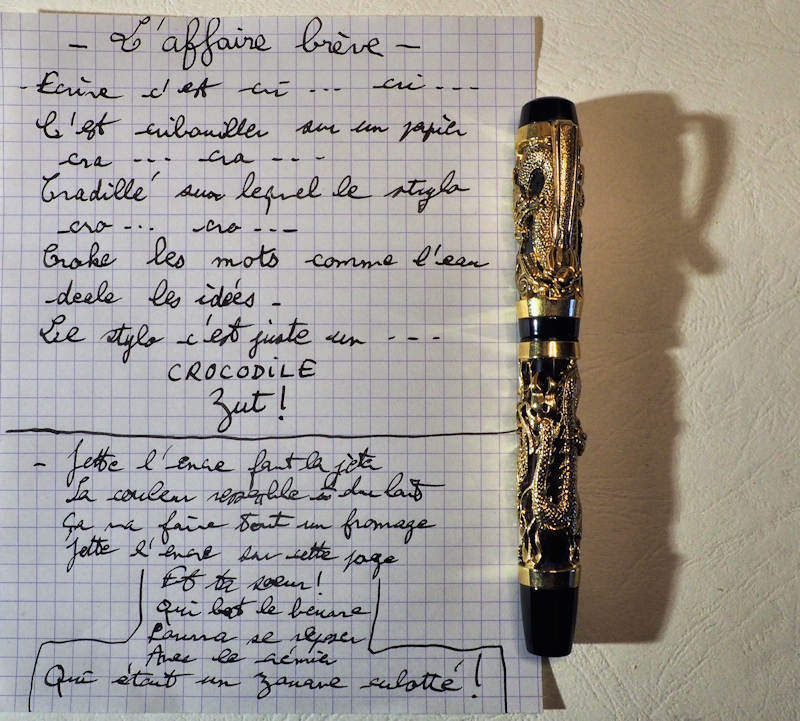 - L'affaire brève -
- Ecrire c'est cri --- cri ---
C'est cribouiller sur un papier
cra --- cra ---
Cradillé sur lequel le stylo
cro --- cro ---
Croke les mots comme l'eau
deale les idées -
Le stylo c'est juste un ---
CROCODILE
Zut!
- Jette l'encre faut la jeter
La couleur ressemble à du lait
Ça va faire tout un fromage
Jette l'encre sur cette page
Et ta soeur!
Qui bat le beurre
Pourra se reposer
Avec le crémier
Qui était un zouave culotté!